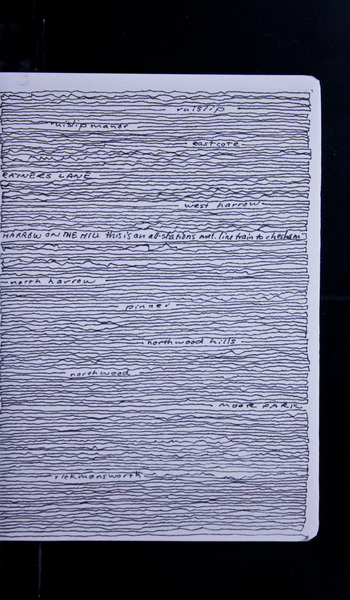 ruislip
ruislip manor
eastcote
RAYNERS LANE
west harrow
HARROW ON THE HILL this is an all-stations met. line train to chesham
north harrow
pinner
northwood hills
northwood
MOOR PARK
rickmansworth